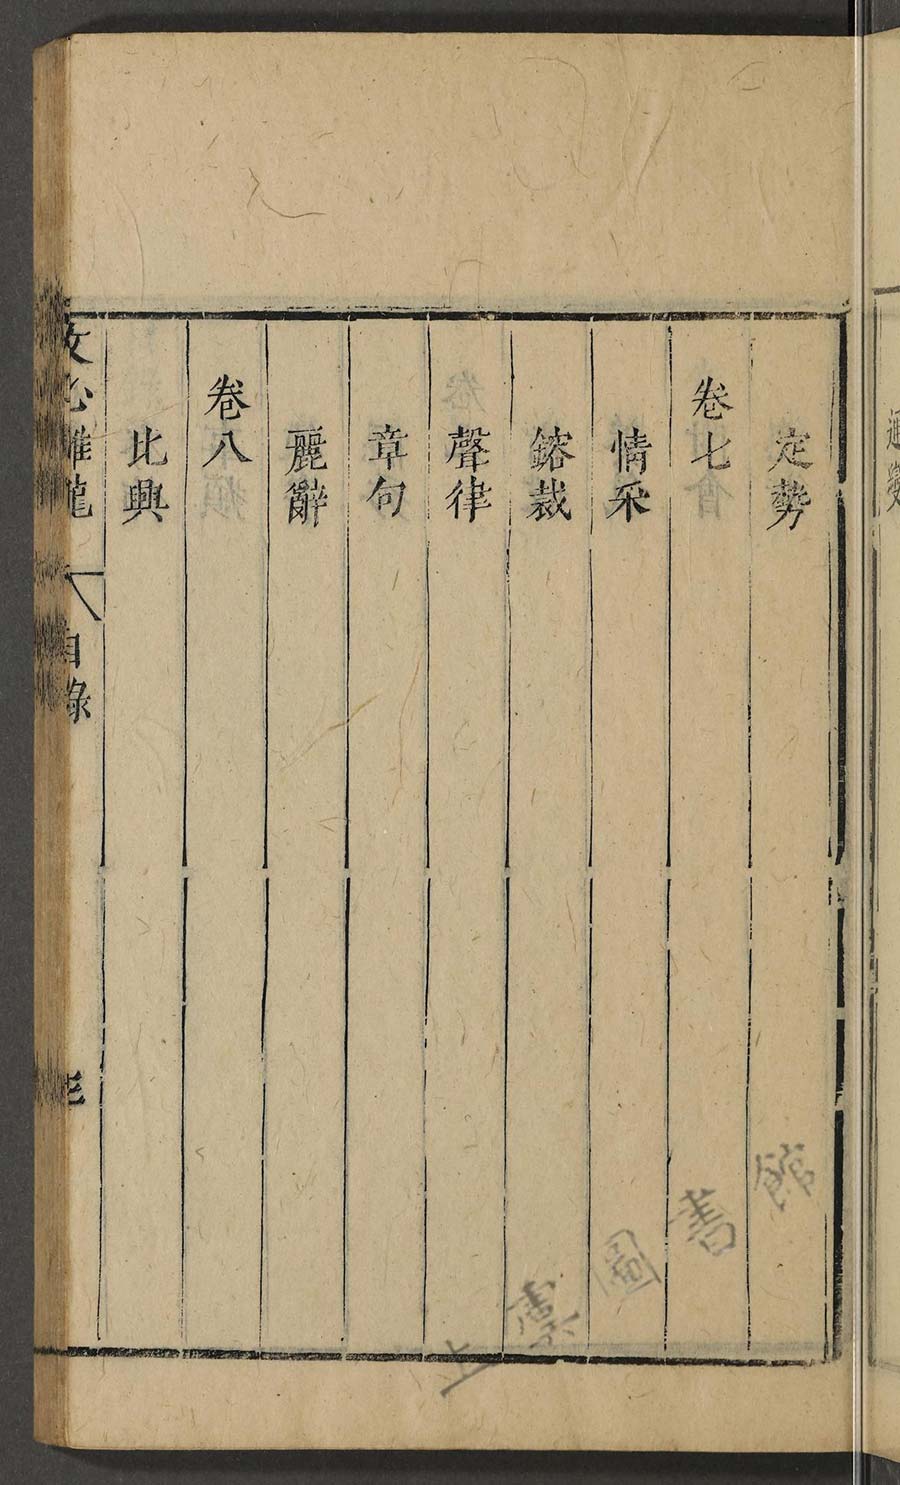 通變
定勢
卷七
情采
鎔裁
聲律
章句
麗辭
卷八
比興
文心雕龍
目錄
三
上虞圖書館